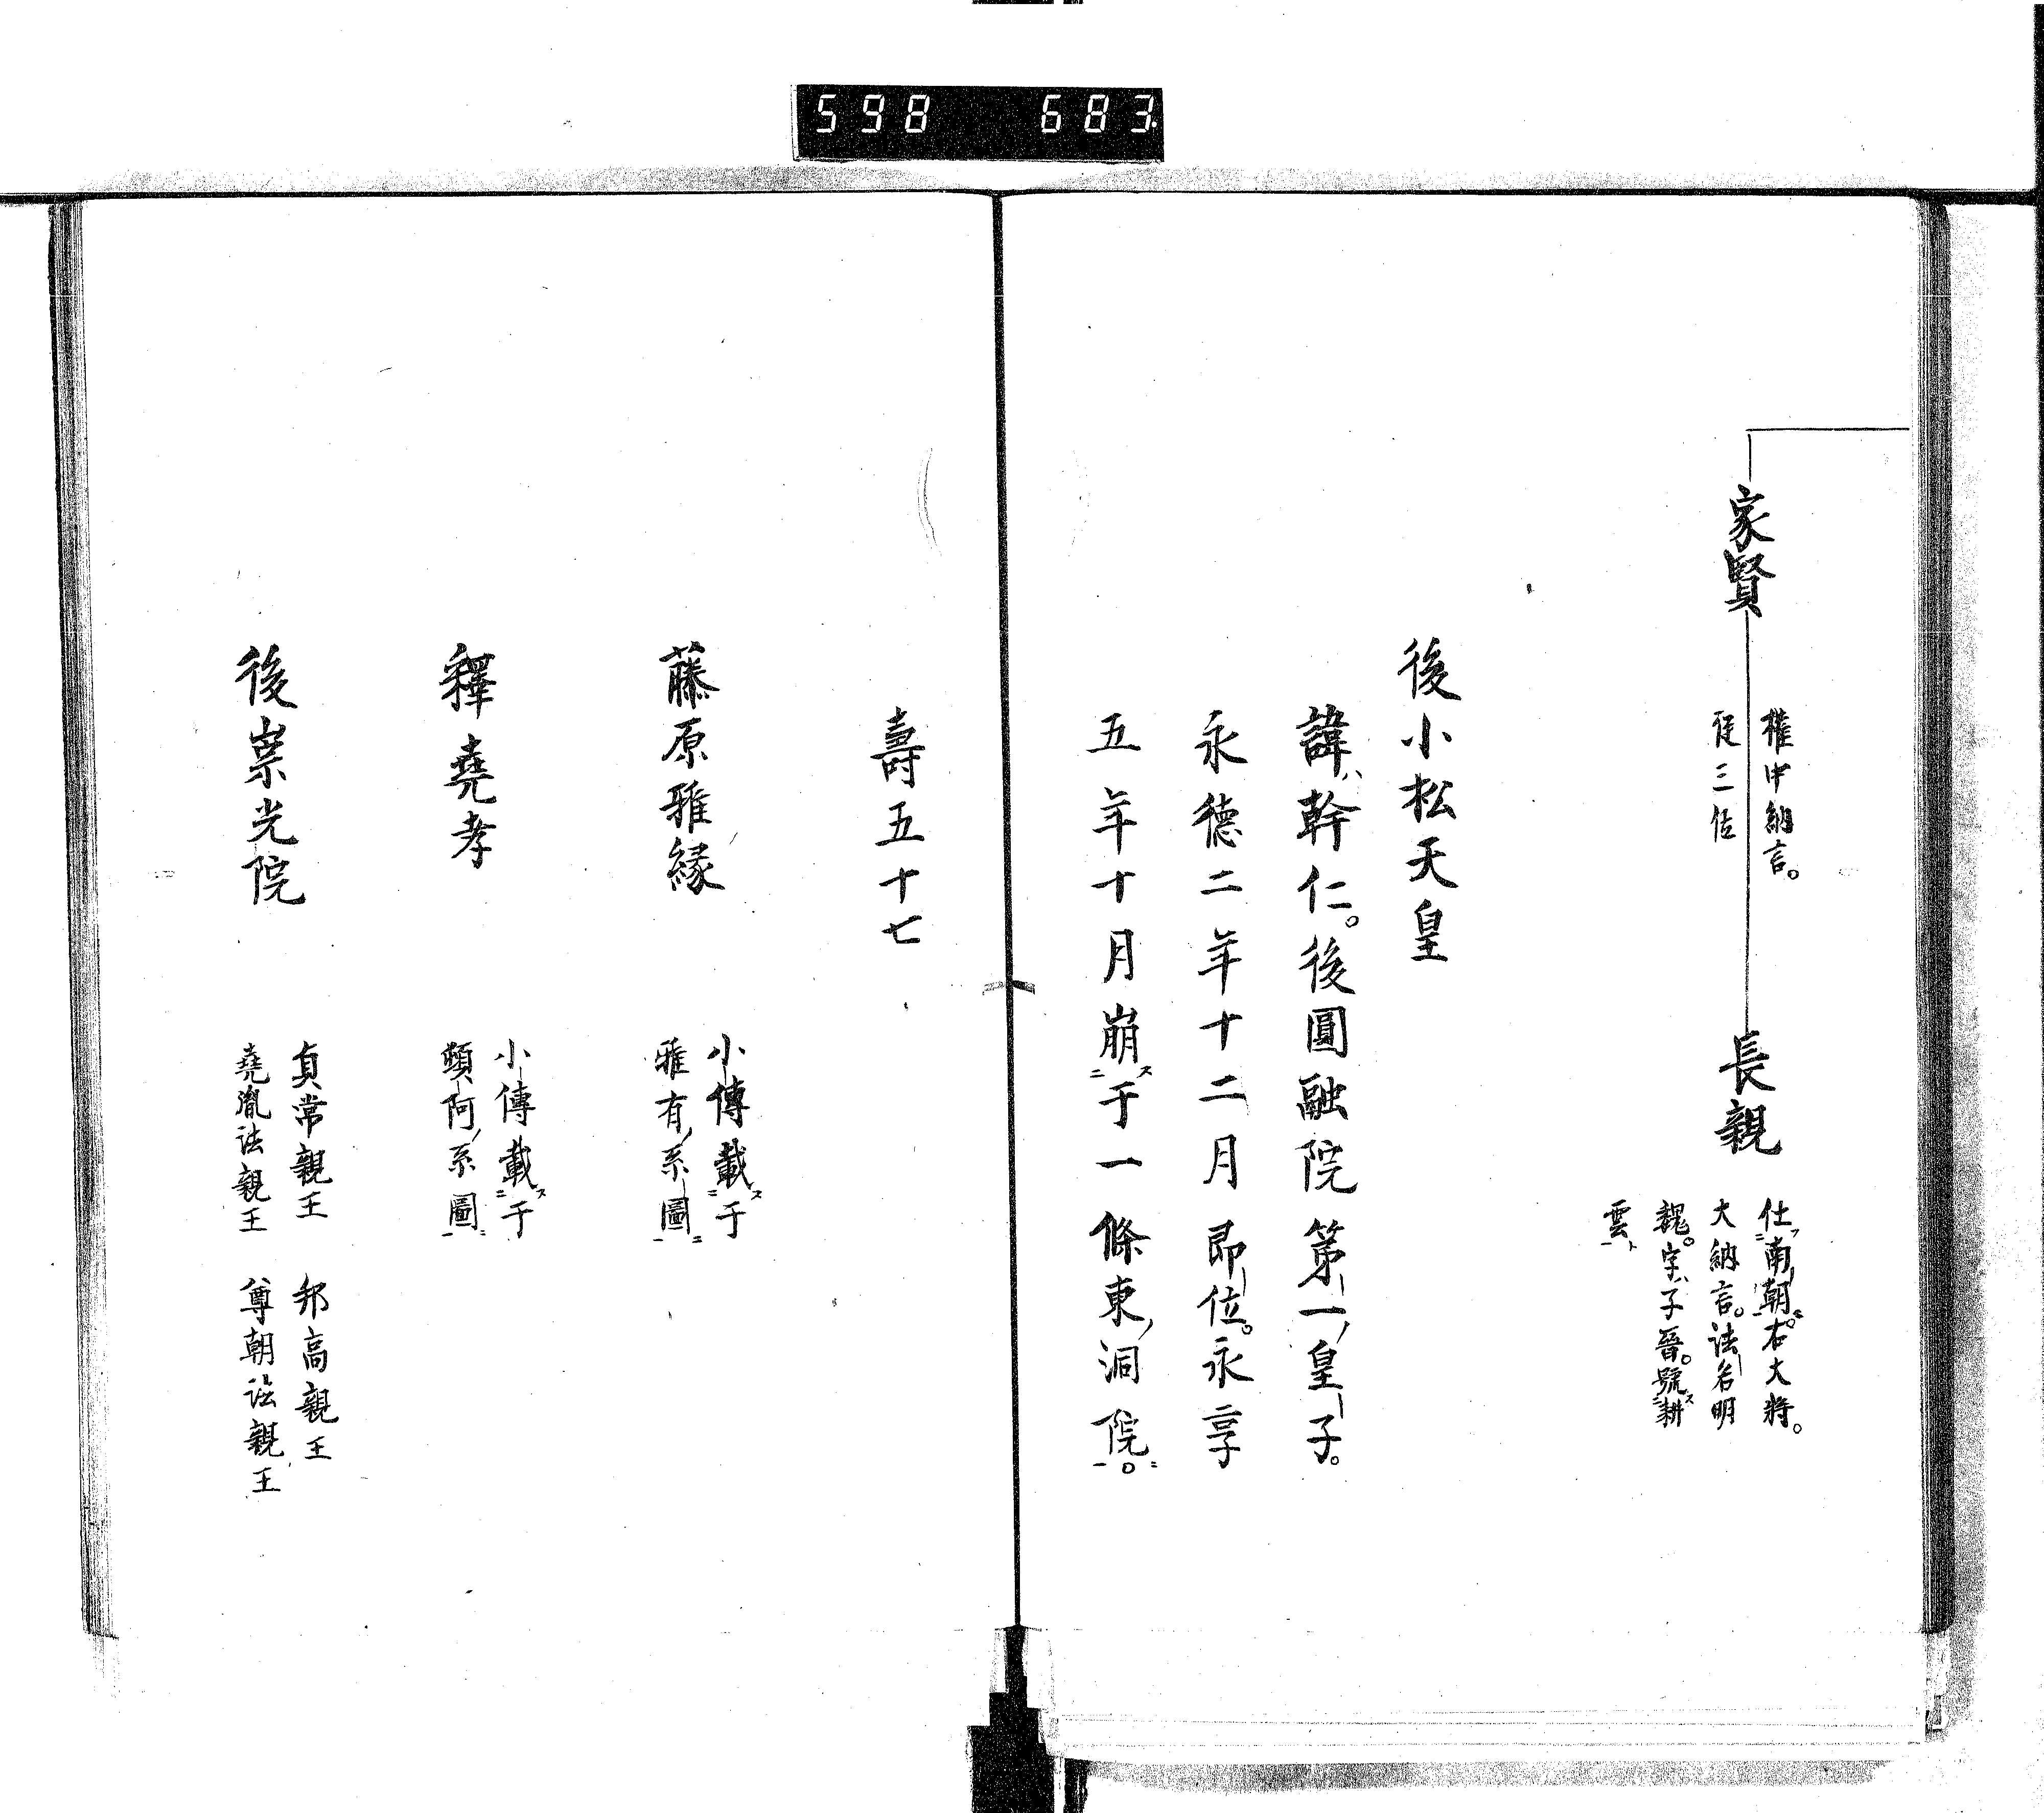 598 683
家賢
權中納言。
從三位
長親
仕南朝。右大將。
大納言。法名明
魏。字子晉。號耕
雲
後小松天皇
諱幹仁。後圓融院第一皇子。
永德二年十二月即位。永享
五年十月崩于一條東洞院。
壽五十七
藤原雅緣
小傳載于
雅有系圖
釋堯孝
小傳載于
頓阿系圖
後崇光院
貞常親王 邦高親王
堯胤法親王 尊朝法親王